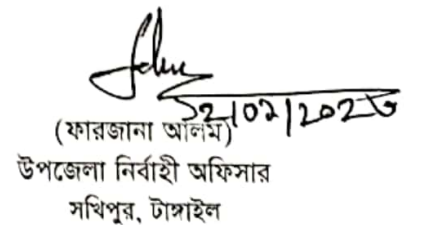 ১২/০২/২০২৩
(ফারজানা আলম)
উপজেলা নির্বাহী অফিসার
সখিপুর, টাঙ্গাইল